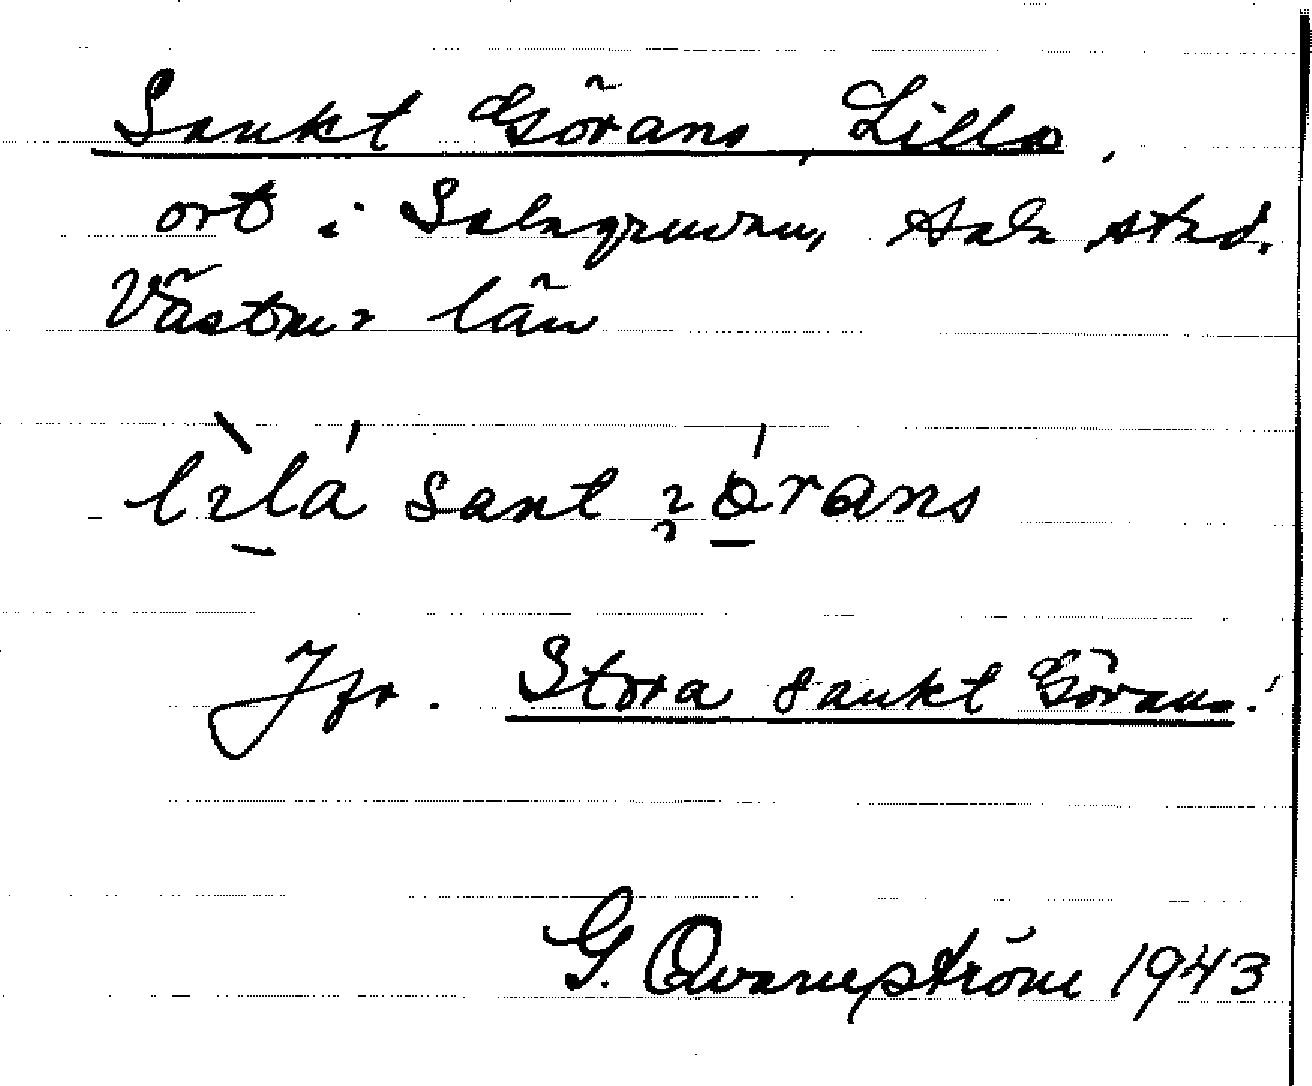 Sankt Görans, Lilla,
ort i Salagruvan, Sala stad.
Västm:s län
lìlá sant jörans
Jfr. Stora Sankt Görans!
G. Qvarnström 1943